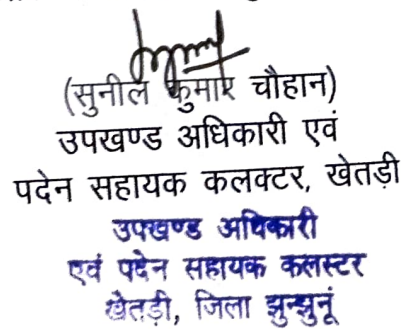 (सुनील कुमार चौहान)
उपखण्ड अधिकारी एवं
पदेन सहायक कलक्टर, खेतड़ी
उपखण्ड अधिकारी
एवं पदेन सहायक कलस्टर
खेतड़ी, जिला झुन्झुनूं